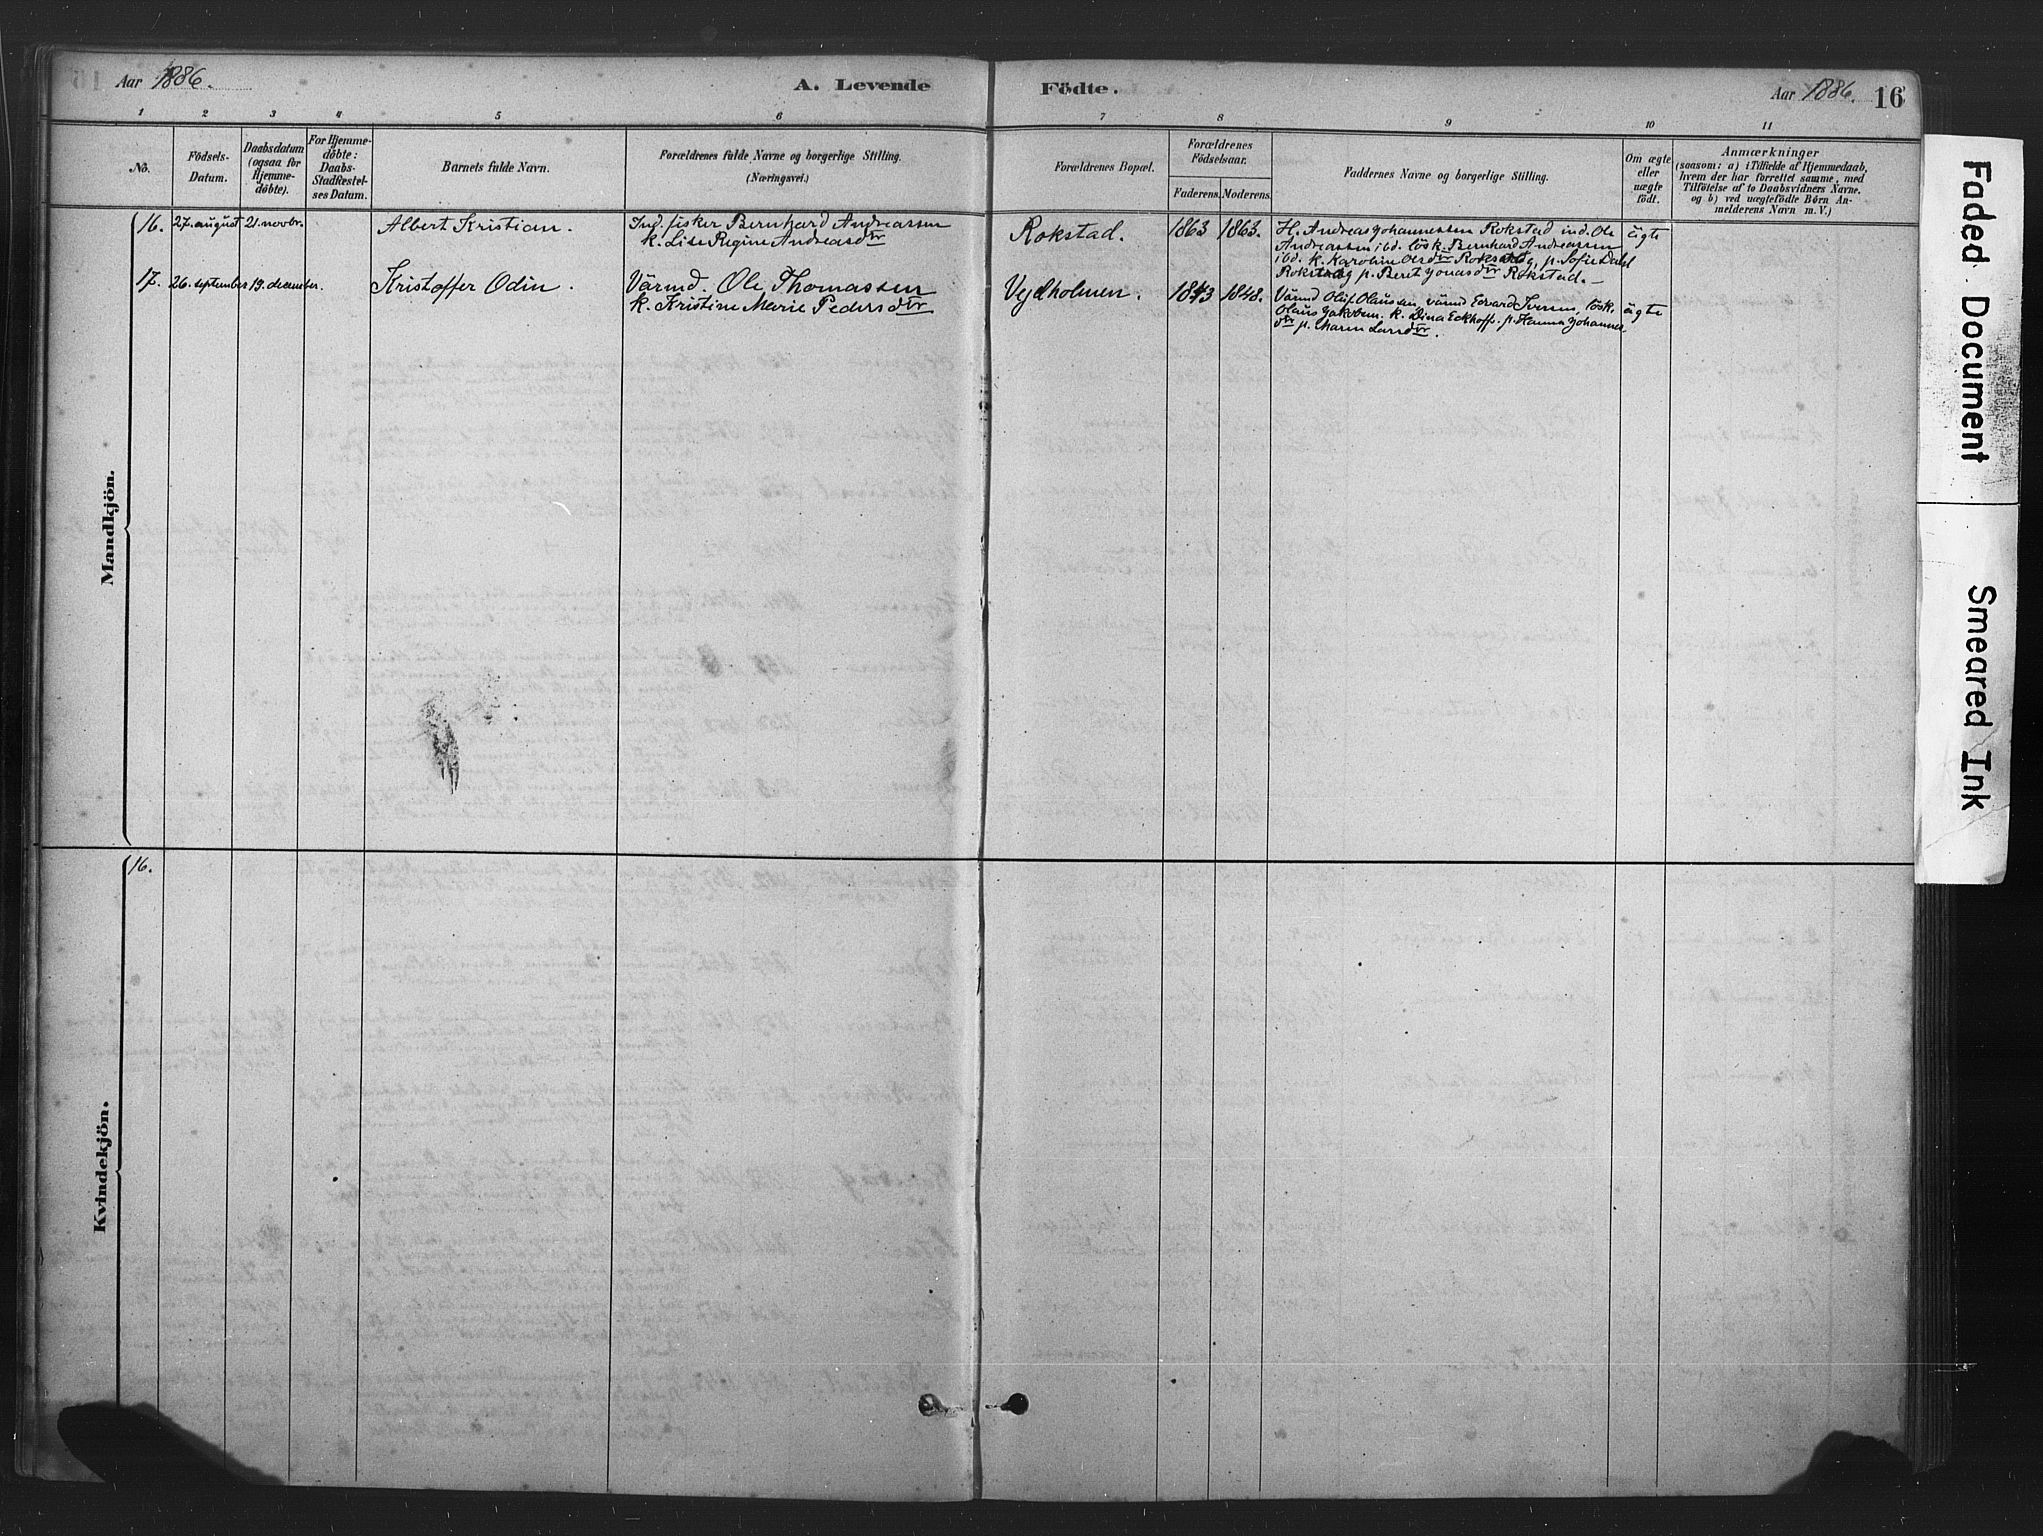 Aar 1886.
A. Levende
Födte.
Aar 1886.
16
1 2 3 4 5 6 7 8 9 10 11
No.
Födsels-
Datum.
Daabsdatum
(ogsaa for
Hjemme-
døbte).
For Hjemme-
døbte:
Daabs-
Stadfæstel-
ses Datum.
Barnets fulde Navn.
Forældrenes fulde Navne og borgerlige Stilling.
(Næringsvei.)
Forældrenes Bopæl.
Forældrenes
Födselsaar.
Faderens.
Moderens.
Faddernes Navne og borgerlige Stilling.
Om ægte
eller
uægte
født.
Anmærkninger
(saasom: a) i Tilfælde af Hjemmedaab,
hvem der har forrettet samme, med
Tilføielse af to Daabsvidners Navne.
og b) ved uægtefødte Børn An-
melderens Navn m. V.)
Mandkjön.
16.
27. august
21. novbr.
Albert Kristian.
Ind. fisker Bernhard Andreassen
k. Lise Regine Andreasdtr
Rokstad.
1863
1863.
H. Andreas Johannessen Rokstad ind. Ole
Andreassen ibd. lösk. Bernhard Andreassen
ibd. k. Karoline Olsdtr p. Sofie Dahl
p. Beret Jonasdtr Rokstad.
ägte
17.
26. september
19. december.
Kristoffer Odin.
Värmd. Ole Thomassen
k. Kristine Marie Pedersdtr
Vejlholmen.
1843
1848.
Värmd Oluf Olaussen, värmd Edvard Iversen, lösk.
Olaus Jakobsen. k. Dina Eckhoff. p. Hanna Johannes
dtr p. Maren Larsdtr.
ägte
Kvindekjön.
16.
Faded Document
Smeared Ink